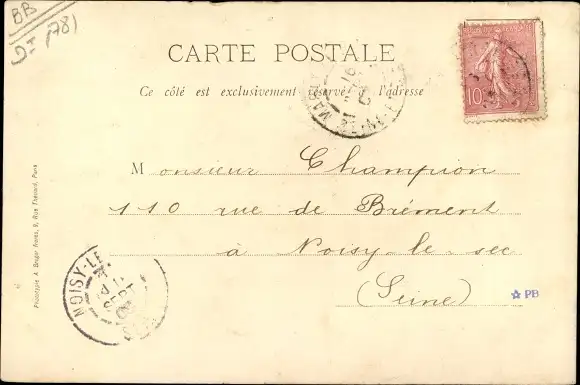 BB
(78)
CARTE POSTALE
Ce côté est exclusivement réservé à l'adresse
10
Monsieur Champion
110 rue de Brément
à Noisy-le-sec
(Seine)
NOISY-LE
SEPT
☆ PB
Phototypie A. Breger Frères, 9, Rue Thénard, Paris